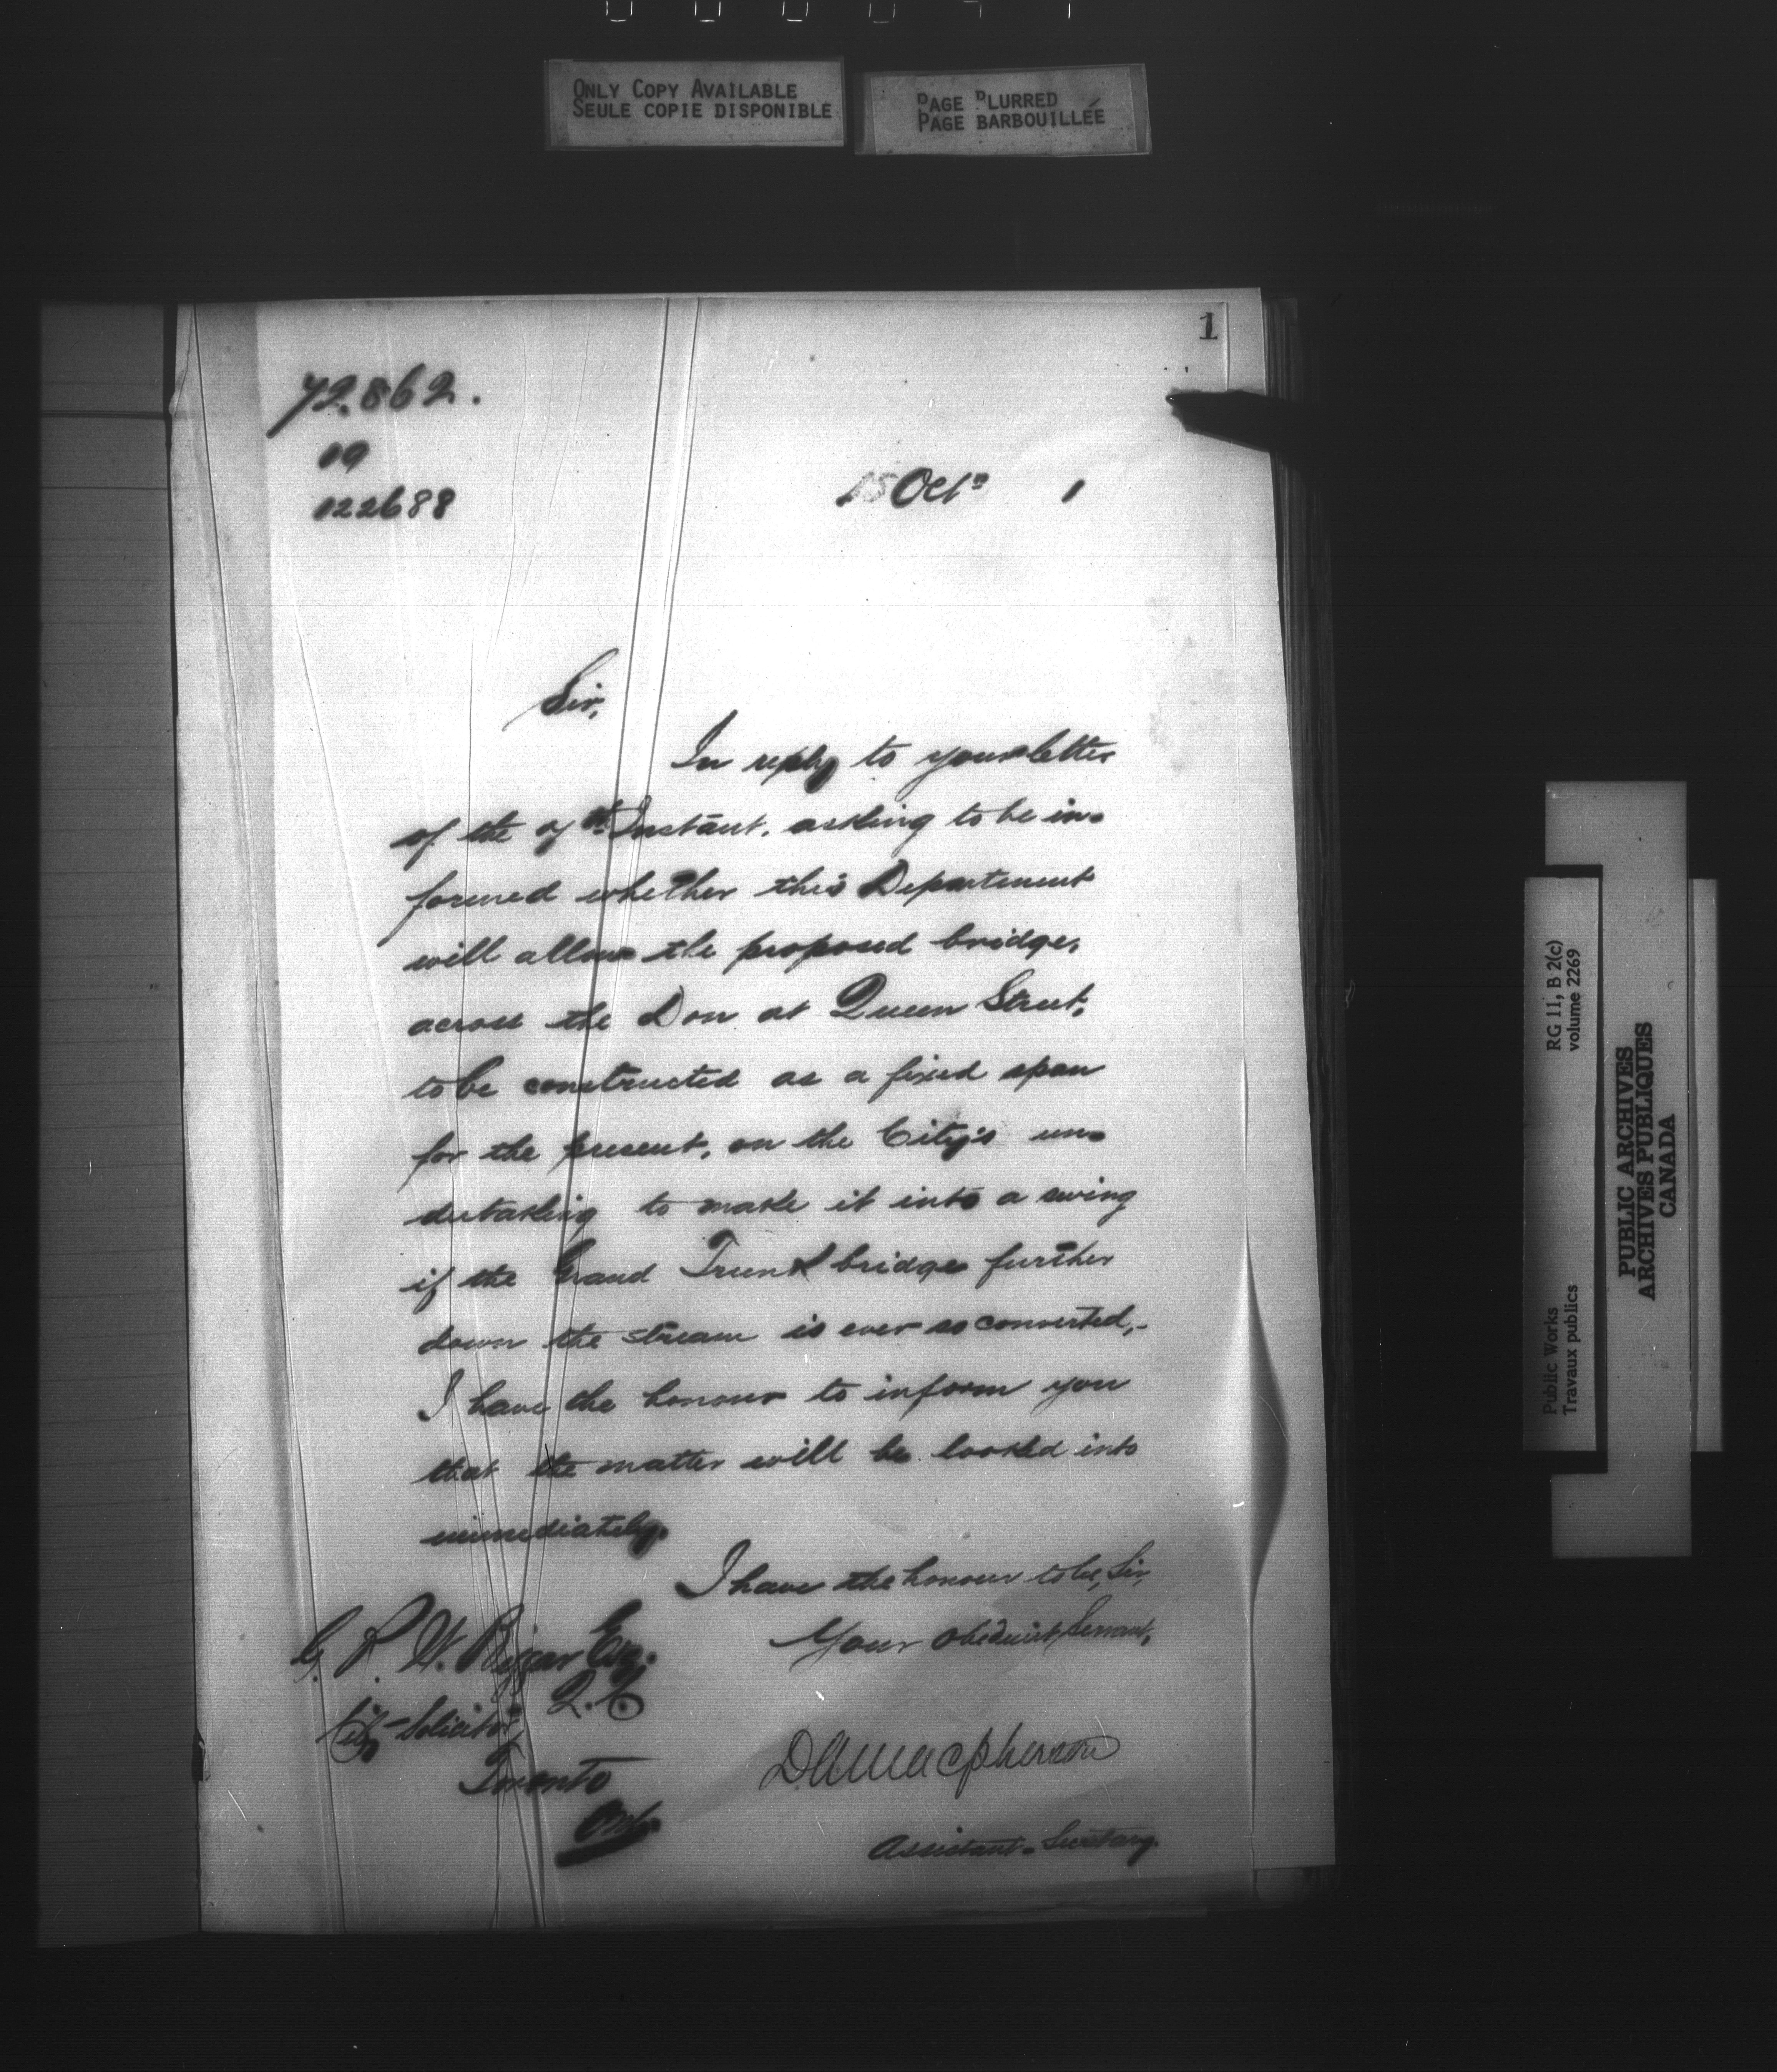 ONLY COPY AVAILABLE
SEULE COPIE DISPONIBLE
PAGE BLURRED
PAGE BARBOUILLÉE
1
72.862.
19
122688
15 Oct 1
Sir,
In reply to your letter
of the 7th Instant, asking to be in-
formed whether this Department
will allow the proposed bridge,
across the Don at Queen Street,
to be constructed as a fixed span
for the present, on the City's un-
dertaking to make it into a swing
if the Grand Trunk bridge further
down the stream is ever so converted,-
I have the honour to inform you
that the matter will be looked into
immediately.
I have the honour to be, Sir,
Your obedient Servant,
C. R. W. Biggar Esq.
Q.C
City Solicitor
Toronto
Ont.
DAMacpherson
Assistant-Secretary.
RG 11, B 2(c)
volume 2269
Public Works
Travaux publics
PUBLIC ARCHIVES
ARCHIVES PUBLIQUES
CANADA